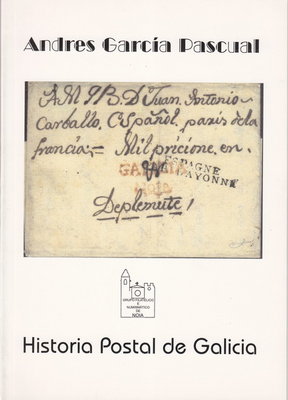 Andres García Pascual
A M I B. Dn Juan, Antonio
Carballo, Español, paris dela
francia;= Mil pricione, en.
GALICIA
ESPAGNE
BAYONNE
Deplemute!
GRUPO FILATELICO
E
NUMISMATICO
DE
NOIA
Historia Postal de Galicia